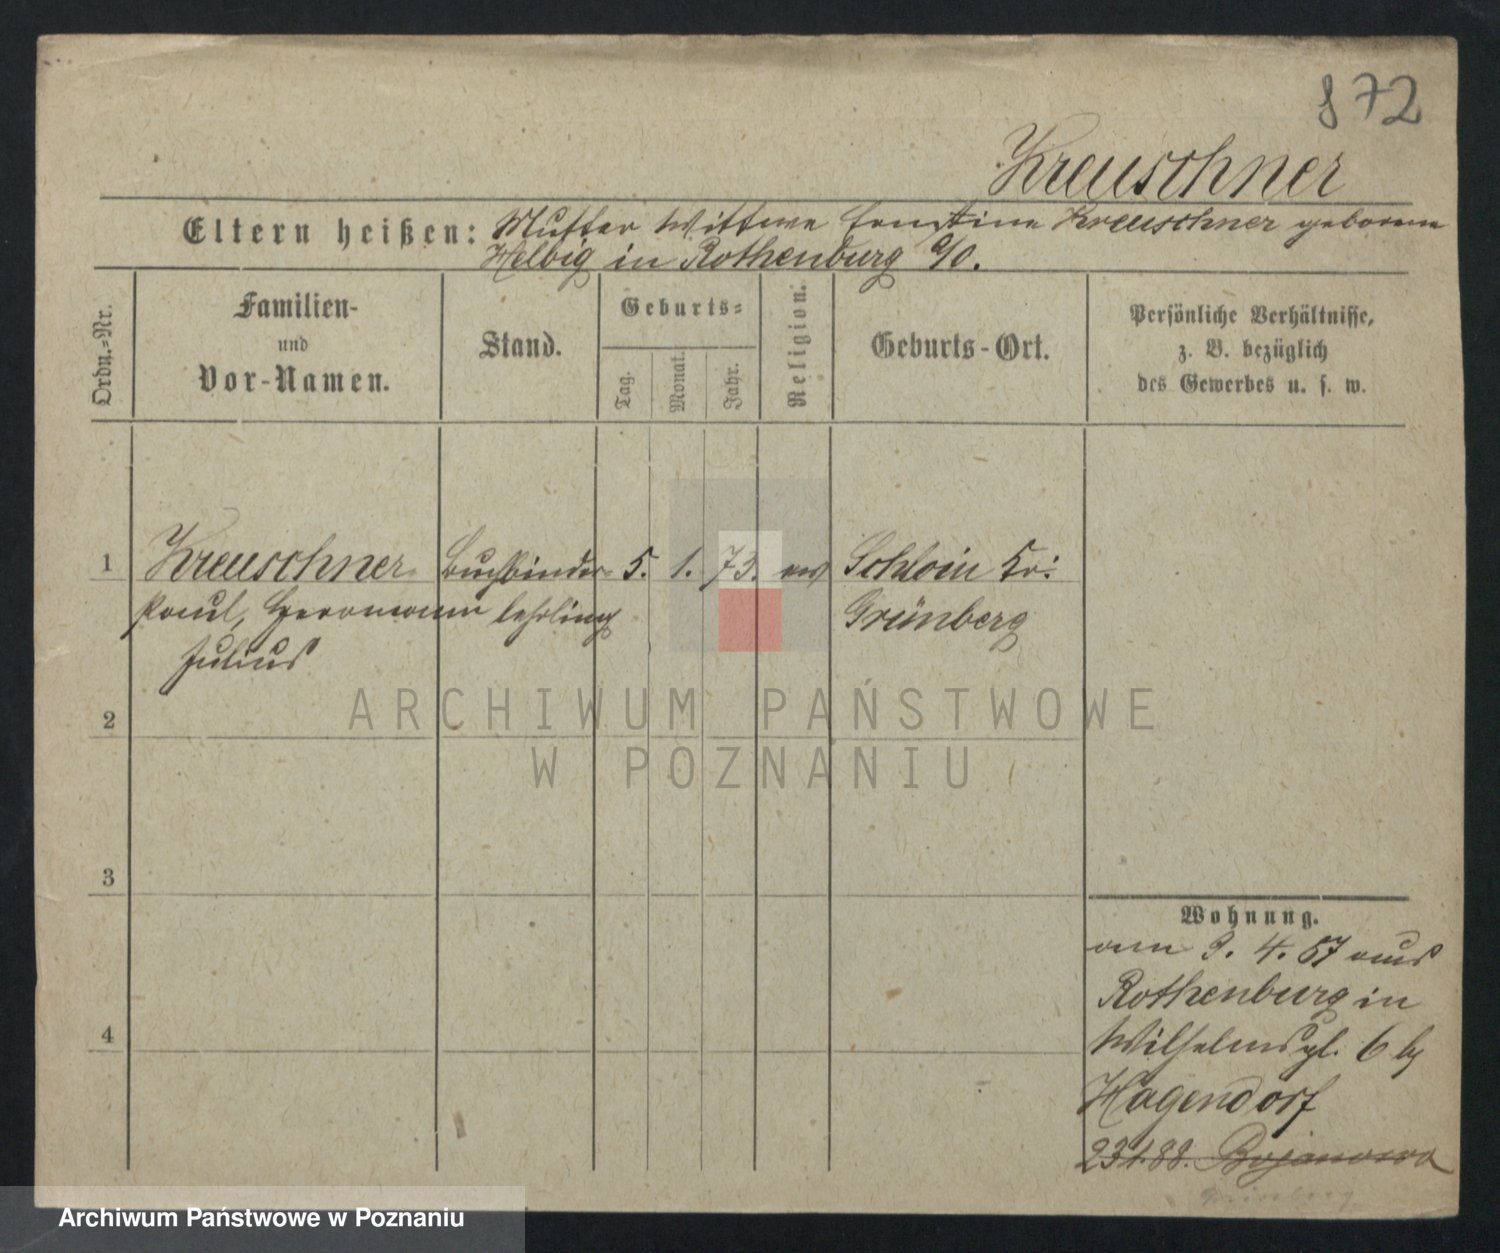 872
Kreuschner
Eltern heißen: Mutter Wittwe Ernstine Kreuschner geborene
Helbig in Rothenburg a/O.
Ordn.-Nr.
Familien-
und
Vor-Namen.
Stand.
Geburts-
Tag.
Monat.
Jahr.
Religion.
Geburts-Ort.
Persönliche Verhältnisse,
z. B. bezüglich
des Gewerbes u. s. w.
1 Kreuschner Buchbinder- 5. 1. 73. ev Schloin Kr:
Paul, Herrmann lehrling Grünberg
Julius
2
3
4
Wohnung.
am 9. 4. 87 aus
Rothenburg in
Wilhelmspl. 6 by
Hagendorf
23.1.88. Bojanowo
Grünberg
ARCHIWUM PAŃSTWOWE
W POZNANIU
Archiwum Państwowe w Poznaniu